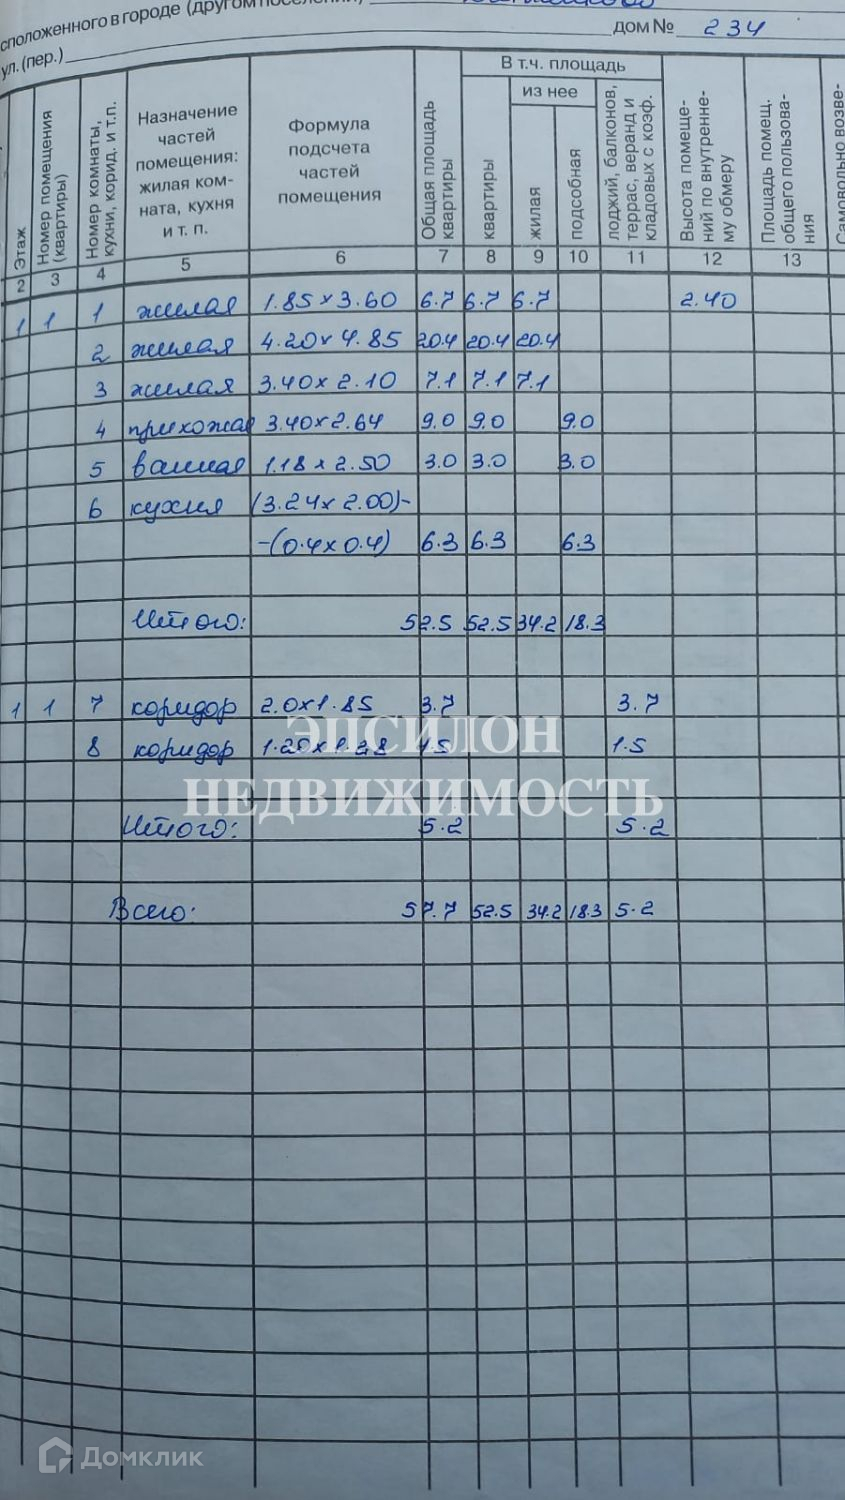 сположенного в городе (другом поселении)
ул. (пер.) дом № 234
Этаж
Номер помещения (квартиры)
Номер комнаты, кухни, корид. и т.п.
Назначение частей помещения: жилая ком- ната, кухня и т. п.
Формула подсчета частей помещения
Общая площадь квартиры
В т.ч. площадь
квартиры
из нее
жилая
подсобная
лоджий, балконов, террас, веранд и кладовых с коэф.
Высота помеще- ний по внутренне- му обмеру
Площадь помещ. общего пользова- ния
Самовольно возве-
2 3 4 5 6 7 8 9 10 11 12 13
1 1 1 жилая 1.85 x 3.60 6.7 6.7 6.7 2.40
2 жилая 4.20 x 4.85 20.4 20.4 20.4
3 жилая 3.40 x 2.10 7.1 7.1 7.1
4 прихожая 3.40 x 2.64 9.0 9.0 9.0
5 ванная 1.18 x 2.50 3.0 3.0 3.0
6 кухня (3.24 x 2.00)-
-(0.4 x 0.4) 6.3 6.3 6.3
Итого: 52.5 52.5 34.2 18.3
1 1 7 коридор 2.0 x 1.85 3.7 3.7
8 коридор 1.5 1.5
ЭПСИЛОН
НЕДВИЖИМОСТЬ
Итого: 5.2 5.2
Всего: 57.7 52.5 34.2 18.3 5.2
Домклик